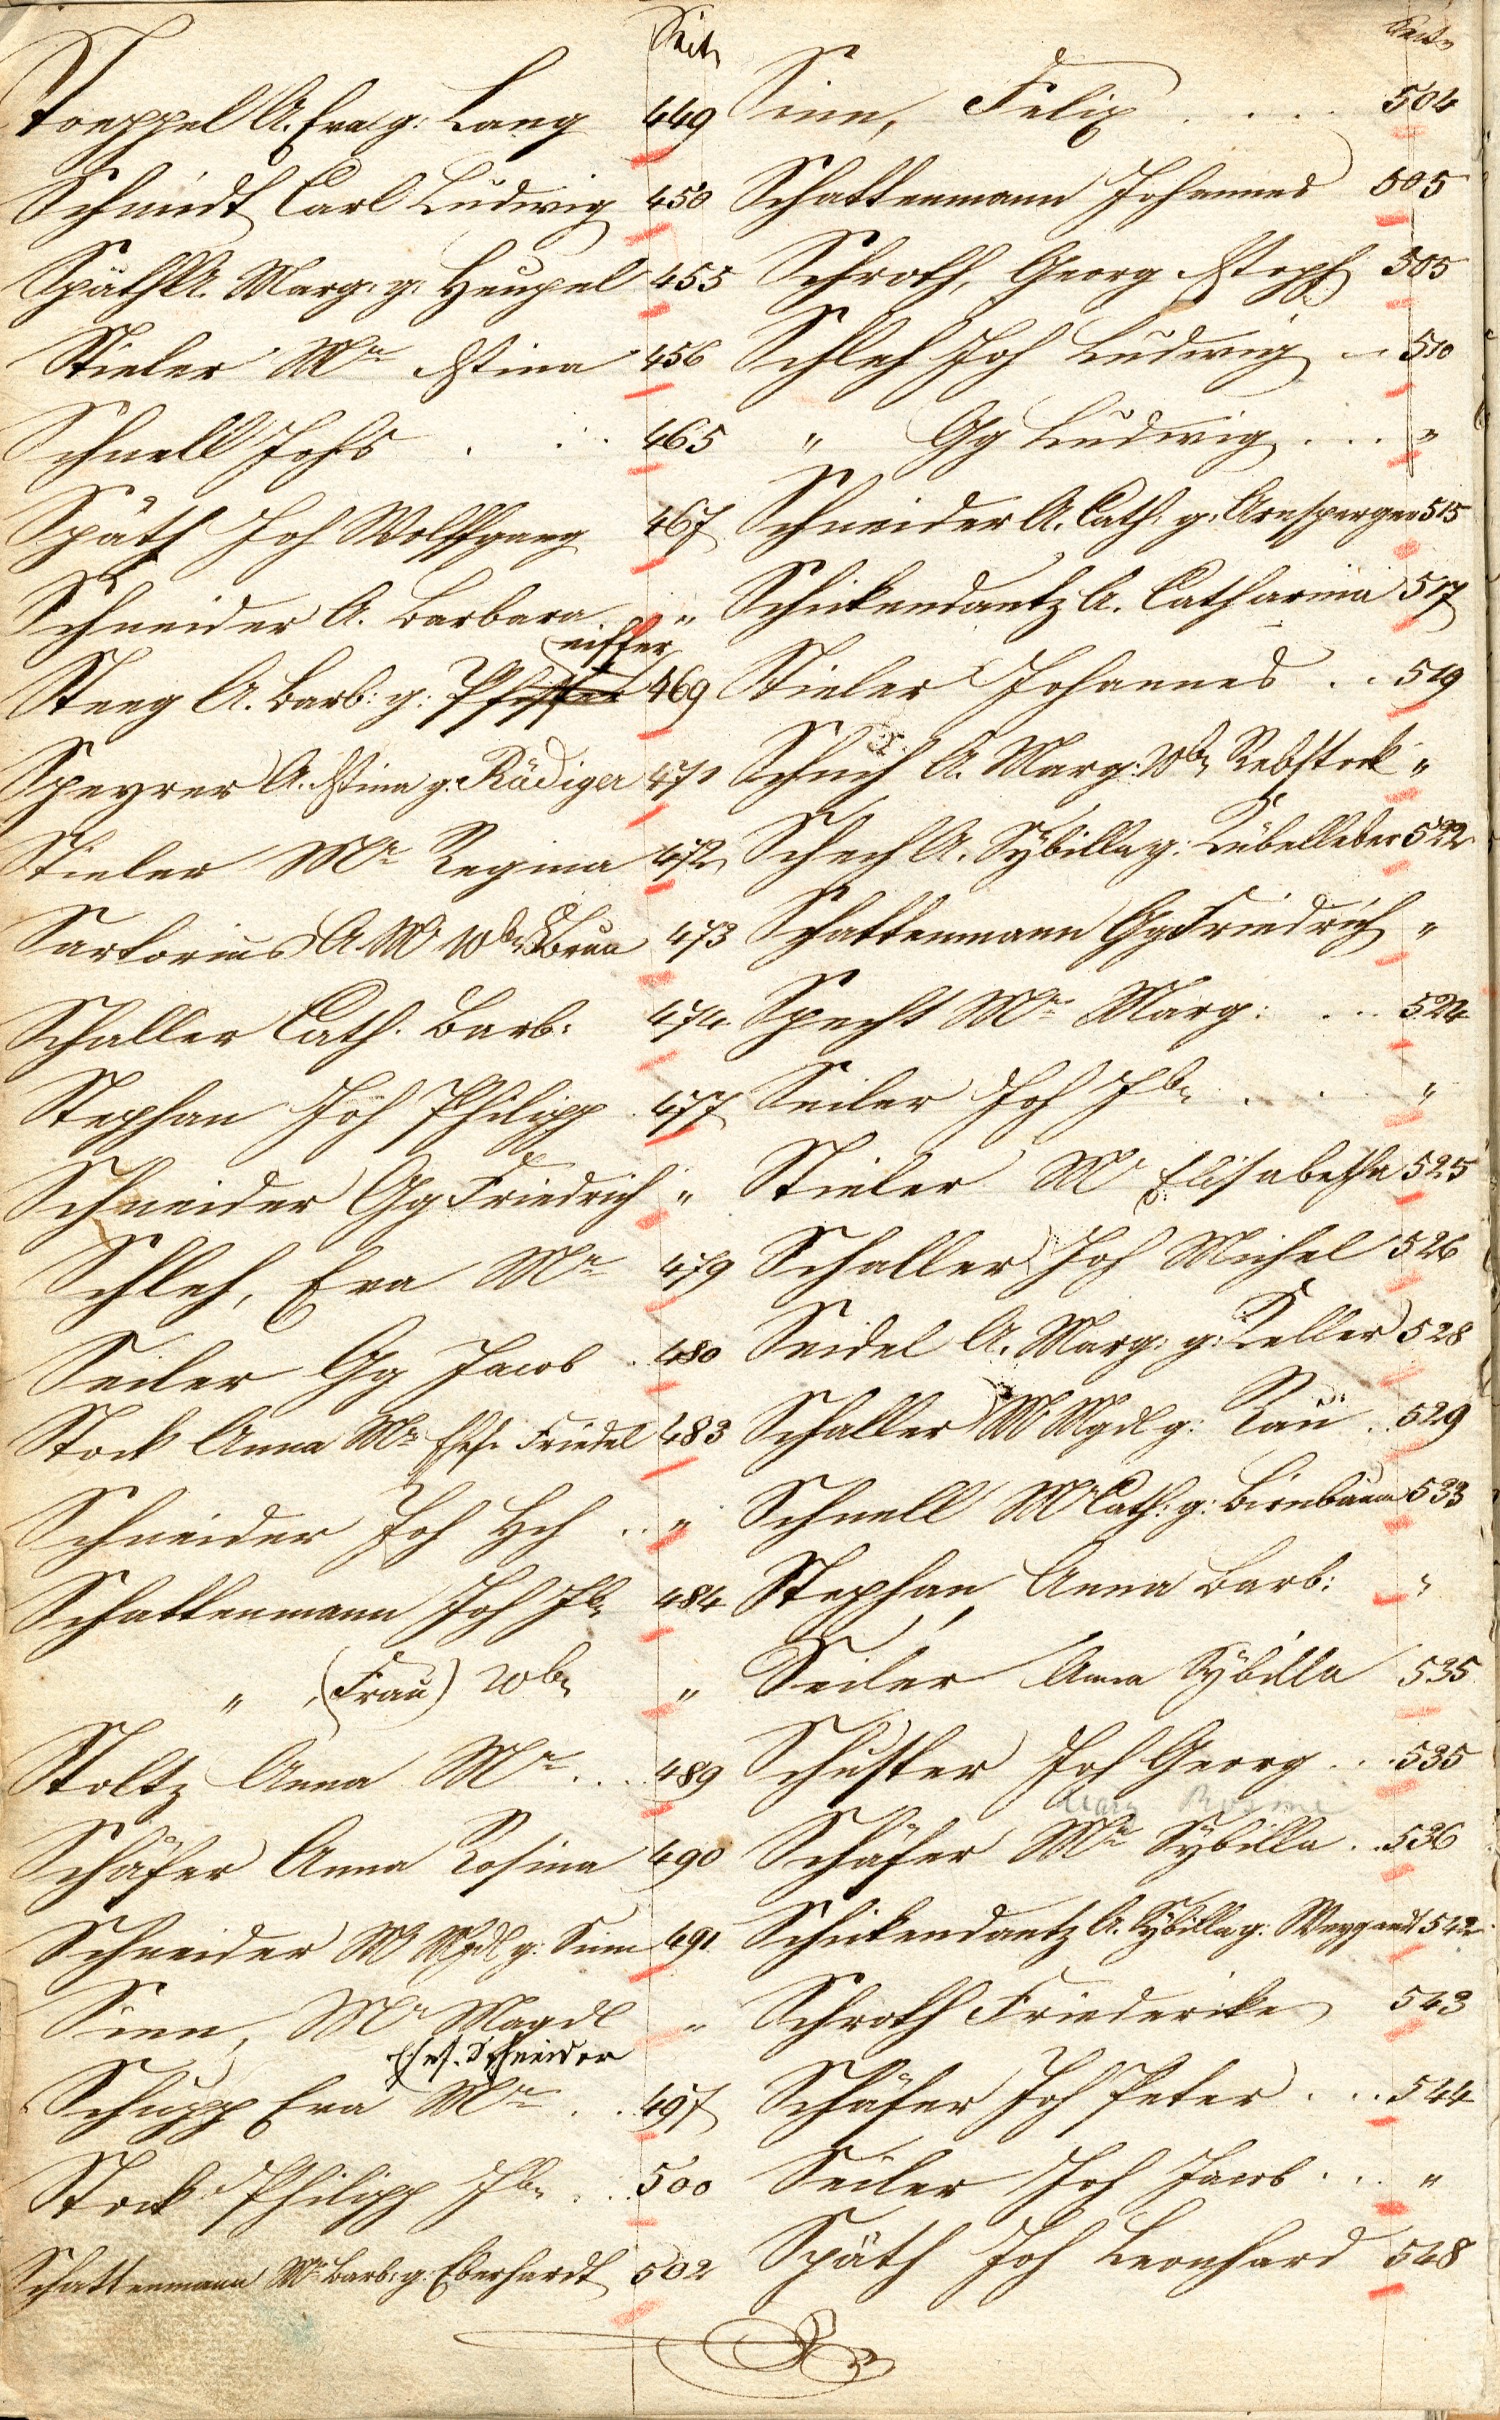 Seite
Toeppel A. Eva g: Lang 449
Schmidt Carl Ludwig 450
Späth A. Marg: g: Heupel 455
Stieler Mª Xstina 456
Schnell Johs . . . 465
Späth Joh Wolffgang 467
Schneider A. Barbara "
eiffer
Steeg A. Barb: g: Pfeffer 469
Speyrer A. Xstina g. Rädiger 471
Stieler Mª Regina 472
Sartorius A M Wb 473
Schaller Cath. Barb: 474
Stephan Joh Philipp 477
Schneider Gg Friedrich "
Schleh, Eva Mª 479
Seiler Gg Jacob . 480
Stock Anna Mª Ehef. Friedel 483
Schneider Joh Hch . . "
Schattenmann Joh Jb 484
" (Frau) Wb "
Stoltz Anna Mª . . . 489
Schäfer Anna Rosina 490
Schneider M Mgdl g: Sinn 491
Sinn, Mª Magdl "
Ehef. Schneider
Schupp Eva Mª . . . 497
Stock Philipp Jb . . . 500
Schattenmann Mª Barb: g: Eberhardt 502
Seite
Sinn, Felix . . . . 504
Schattenmann Johannes 505
Schroth, Georg Xstoph 505
Schleh Joh Ludwig . . 510
" Gg Ludwig . . . "
Schneider A. Cath: g: Arnsperger 515
Schikendantz A. Catharina 517
Stieler Johannes . . 519
Schuch A. Marg: Wb Rebstock "
Schech A. Sybilla g: Kübelleber 522
Schattenmann Gg Friedrich "
Specht Mª Marg: . . . 524
Seiler Joh Jb . . . "
Stieler Mª Elisabetha 525
Schaller Joh Michel 526
Seidel A. Marg: g: Keller 528
Schaller M Mgdl g: Rau . . 529
Schnell M Cath: g: Birnbaum 533
Stephan, Anna Barb: "
Seiler Anna Sybilla 535
Schuster Joh Georg . . . 535
Schäfer Mª Sybilla . . 536
Schikendantz A. Sybilla g: Weygand 542
Schroth Friederike 543
Schäfer Joh Peter . . . 544
Seiler Joh Jacob . . . "
Späth Joh Leonhard 548